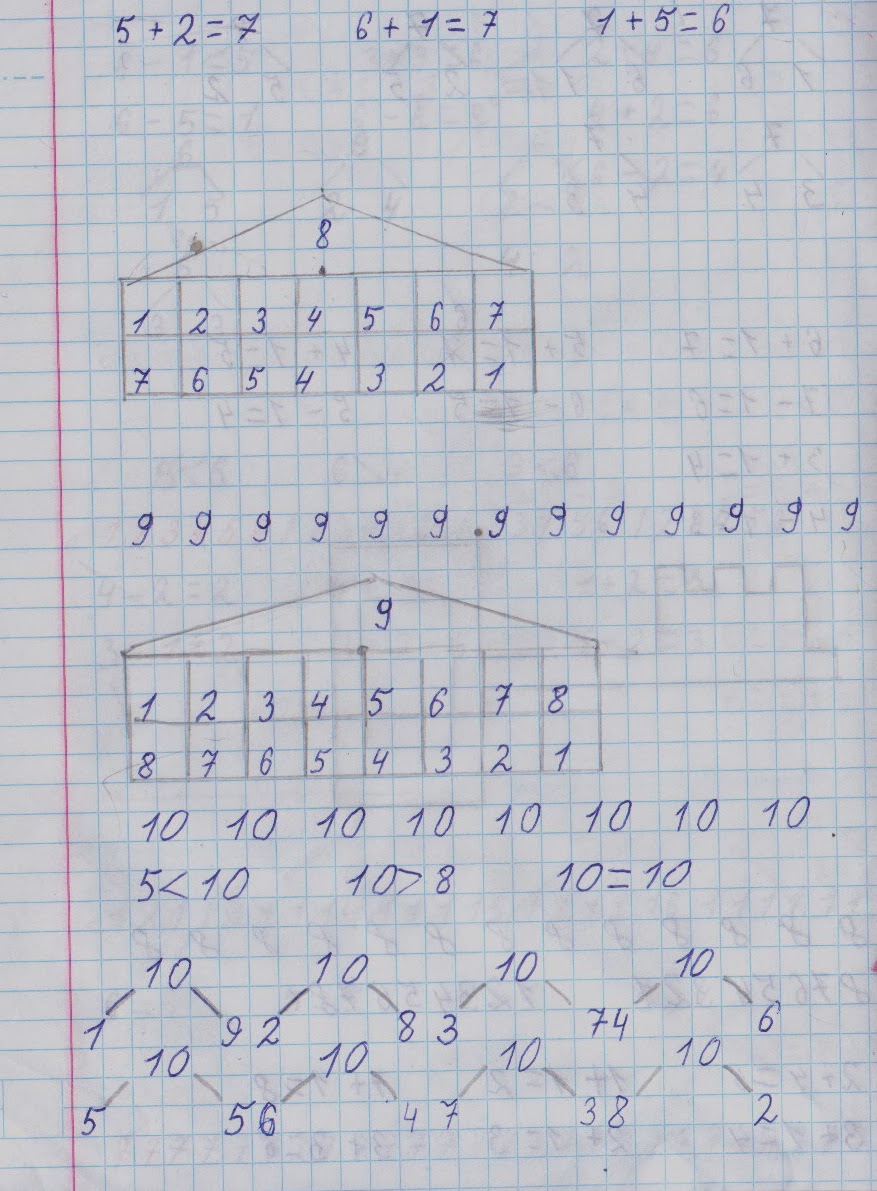 5 + 2 = 7 6 + 1 = 7 1 + 5 = 6
8
1 2 3 4 5 6 7
7 6 5 4 3 2 1
9 9 9 9 9 9 9 9 9 9 9 9 9
9
1 2 3 4 5 6 7 8
8 7 6 5 4 3 2 1
10 10 10 10 10 10 10 10
5 < 10 10 > 8 10 = 10
10 10 10 10
1 9 2 8 3 7 4 6
10 10 10 10
5 5 6 4 7 3 8 2